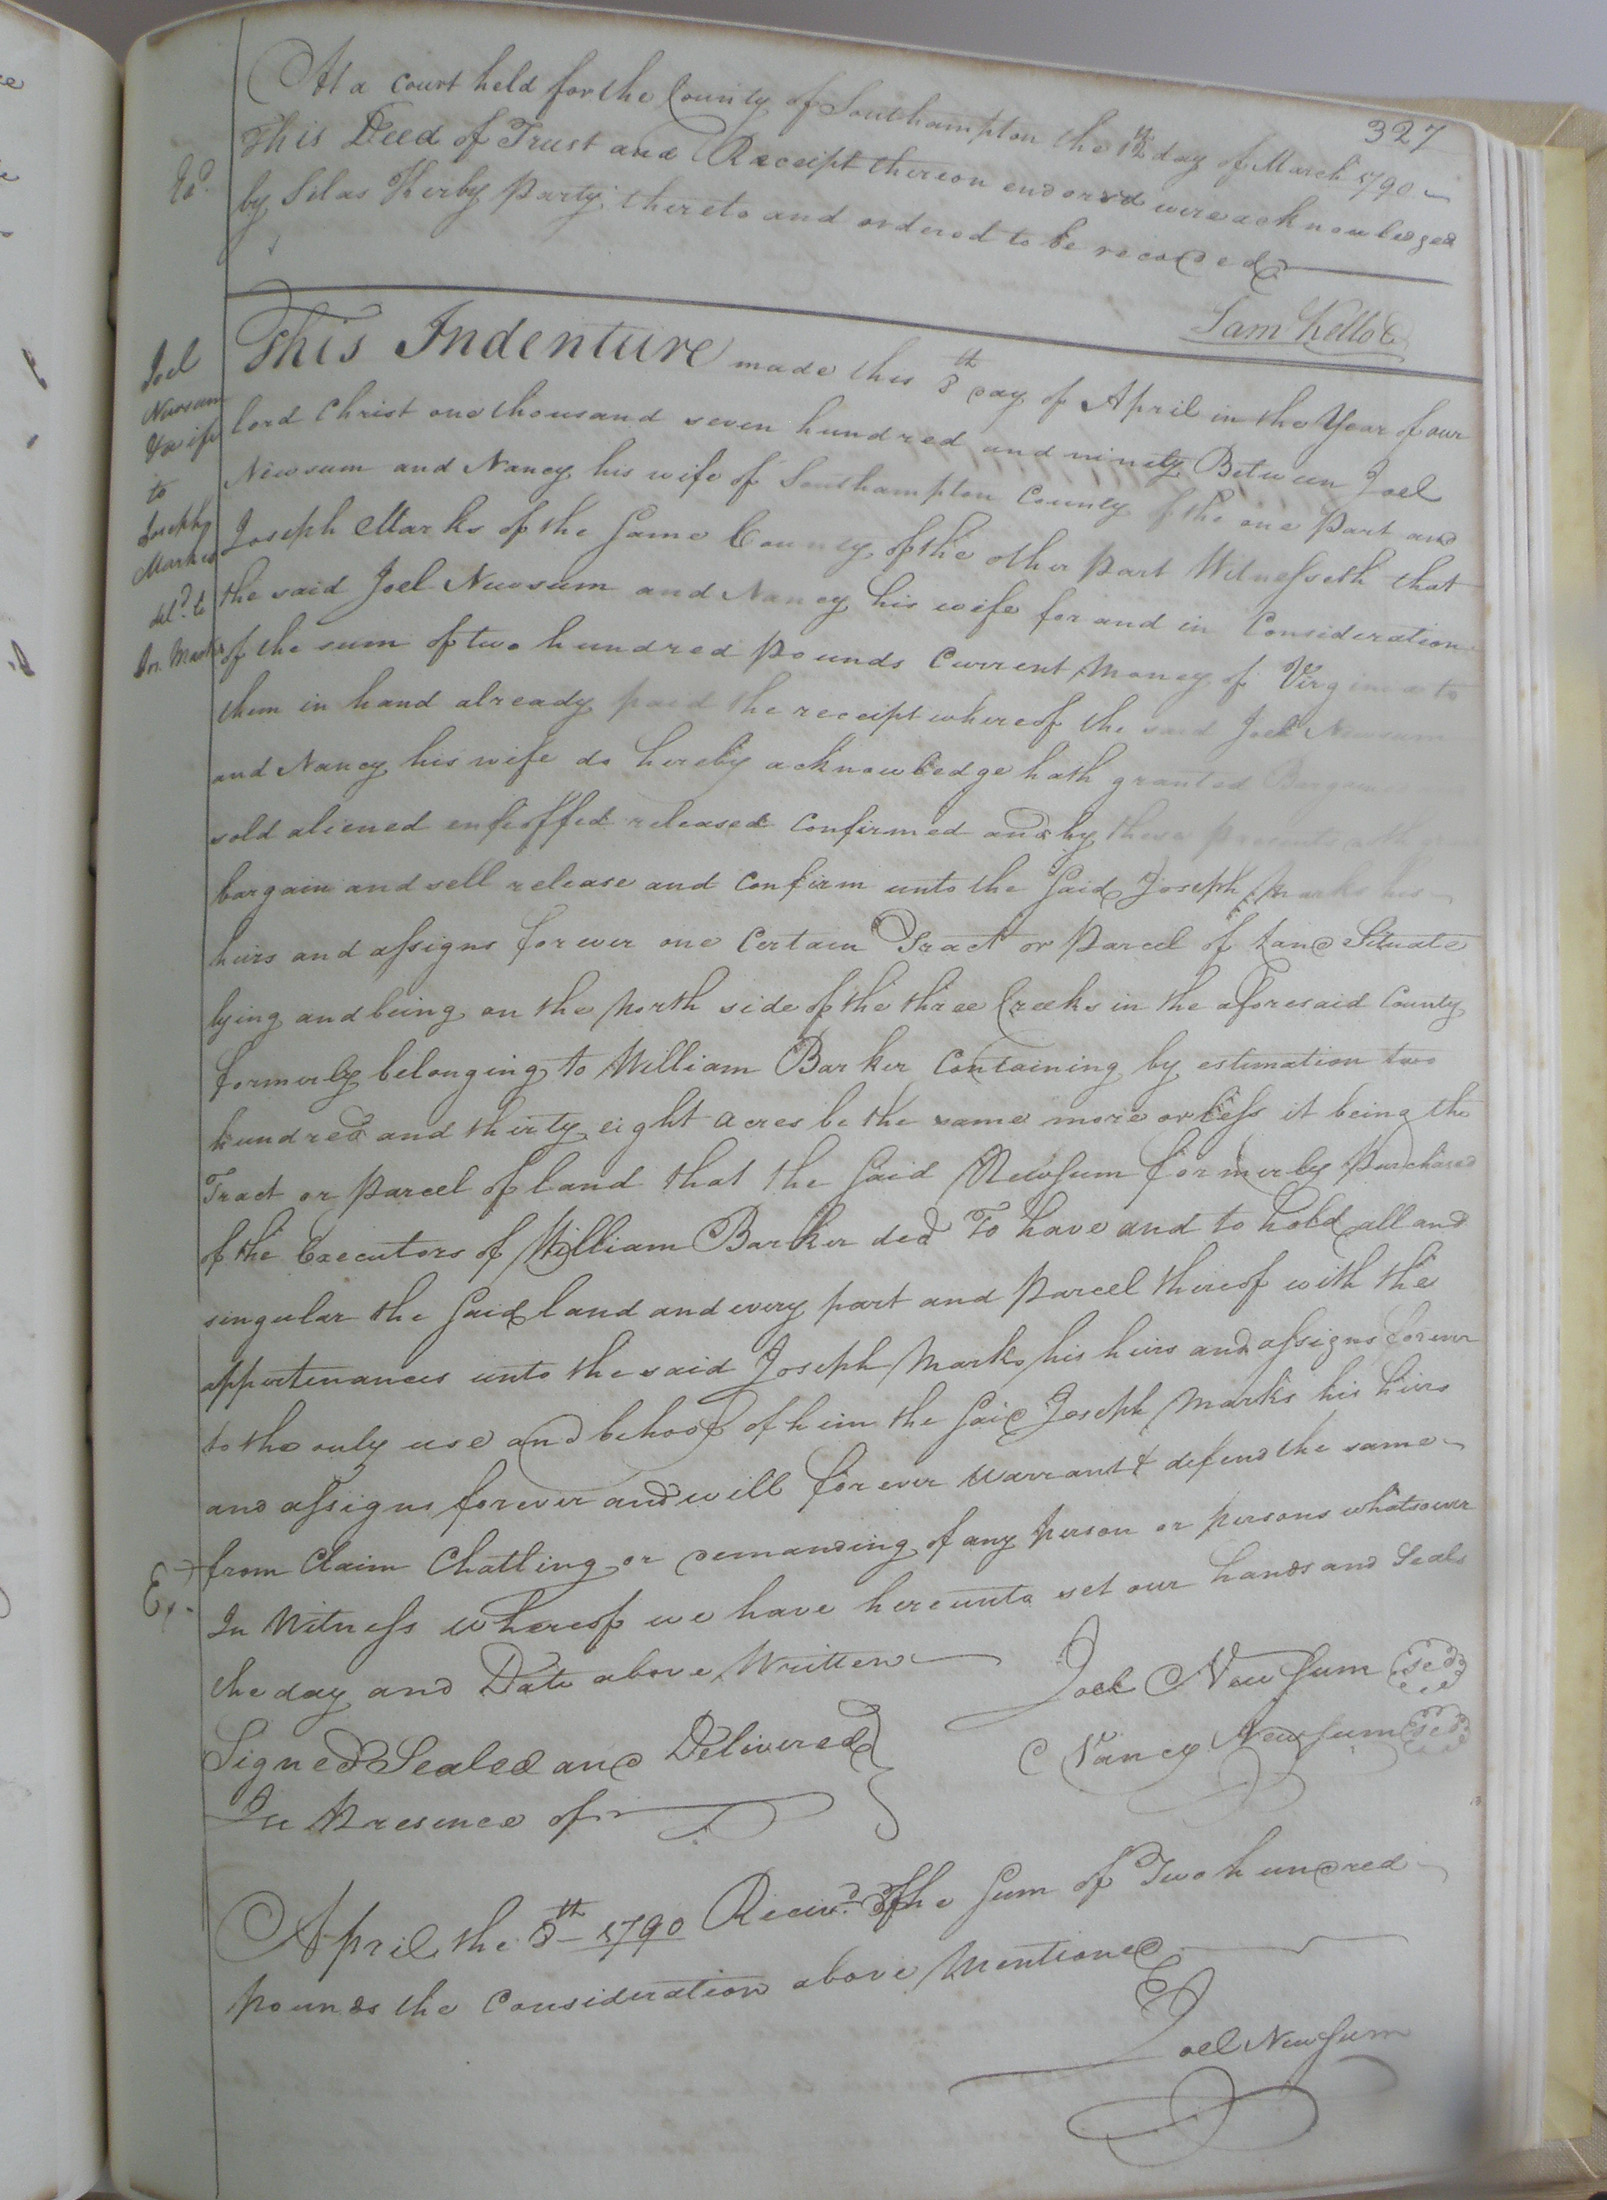 327
At a Court held for the County of Southampton the 12th day of March 1790
This Deed of Trust and Receipt thereon endorsed were acknowledged
by Silas Kerby party thereto and ordered to be recorded
Sam Kello C
This Indenture made this 8th day of April in the Year of our
lord Christ one thousand seven hundred and ninety Between Joel
Newsum and Nancy his wife of Southampton County of the one Part and
Joseph Marks of the Same County of the other Part Witnesseth that
the said Joel Newsum and Nancy his wife for and in Consideration
of the sum of two hundred Pounds Current Money of Virginia to
them in hand already paid the receipt whereof the said Joel Newsum
and Nancy his wife do hereby acknowledge hath granted Bargain
sold aliened enfeoffed released Confirmed and by these presents
bargain and sell release and Confirm unto the Said Joseph Marks his
heirs and assigns forever one Certain Tract or Parcel of Land Situate
lying and being on the North side of the three Creeks in the aforesaid County
formerly belonging to William Barker Containing by estimation two
hundred and thirty eight acres be the same more or less it being the
Tract or Parcel of land that the Said Newsum formerly Purchased
of the Executors of William Barker ded To have and to hold all and
singular the Said land and every part and Parcel thereof with the
appertenances unto the said Joseph Marks his heirs and assigns forever
to the only use and behoof of him the Said Joseph Marks his heirs
and assigns forever and will forever Warrant & defend the same
from Claim Chatling or demanding of any person or persons whatsoever
In Witness whereof we have hereunto set our hands and Seals
the day and Date above Written
Joel Newsum Sed
Nancy Newsum Sed
Signed Sealed and Delivered
In Presence of
April the 8th 1790 Receivd. of the Sum of Two hundred
pounds the Consideration above Mentioned
Joel Newsum
Joel
Newsum
& wife
to
Joseph
Marks
deld. to
Jos. Marks
Ex.